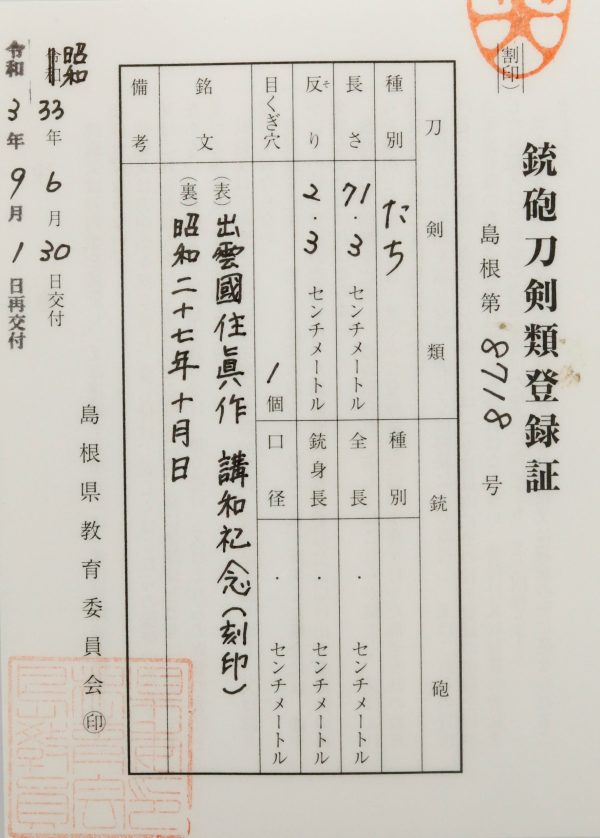 (割印)
銃砲刀剣類登録証
島根第8718号
刀剣類
銃砲
種別 たち
種別
長さ 71.3 センチメートル
全長 . センチメートル
反り 2.3 センチメートル
そ
銃身長 . センチメートル
目くぎ穴 1個
口径 . センチメートル
銘文
(表)出雲國住眞作 講和祀念(刻印)
(裏)昭和二十七年十月日
備考
昭和
33年6月30日交付
令和3年9月1日再交付
島根県教育委員会㊞